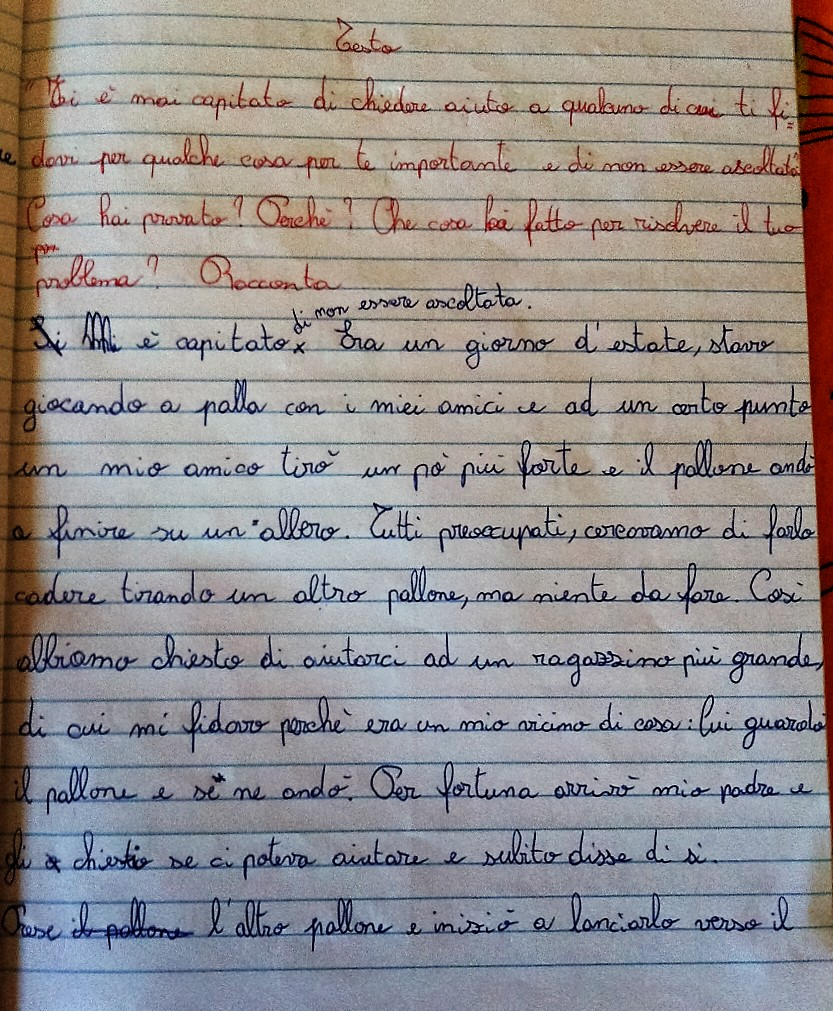 Testo
"Ti è mai capitato di chiedere aiuto a qualcuno di cui ti fi=
davi per qualche cosa per te importante e di non essere ascoltata?
Cosa hai provato? Perché? Che cosa hai fatto per risolvere il tuo
problema? Racconta
di non essere ascoltata.
Si Mi è capitato x Era un giorno d'estate, stavo
giocando a palla con i miei amici e ad un certo punto
un mio amico tirò un pò più forte e il pallone andò
a finire su un albero. Tutti preoccupati, cercavamo di farlo
cadere tirando un altro pallone, ma niente da fare. Così
abbiamo chiesto di aiutarci ad un ragazzino più grande,
di cui mi fidavo perchè era un mio vicino di casa: lui guardò
il pallone e se ne andò. Per fortuna arrivò mio padre e
gli chiesi se ci poteva aiutare e subito disse di si.
Prese il pallone l'altro pallone e iniziò a lanciarlo verso il